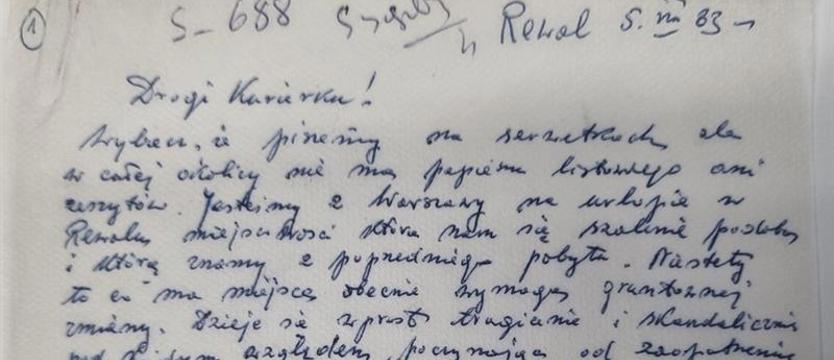 1 S-688 Rewal 5. VIII 83
Drogi Kurierku!
Wybacz, że piszemy na serwetkach, ale
w całej okolicy nie ma papieru listowego ani
zeszytów. Jesteśmy z Warszawy na urlopie w
Rewalu miejscowości która nam się szalenie podoba
i którą znamy z poprzedniego pobytu. Niestety
to co ma miejsce obecnie wymaga gruntownej
zmiany. Dzieje się wprost tragicznie i skandalicznie
pod względem poczynając od zaopatrzenia